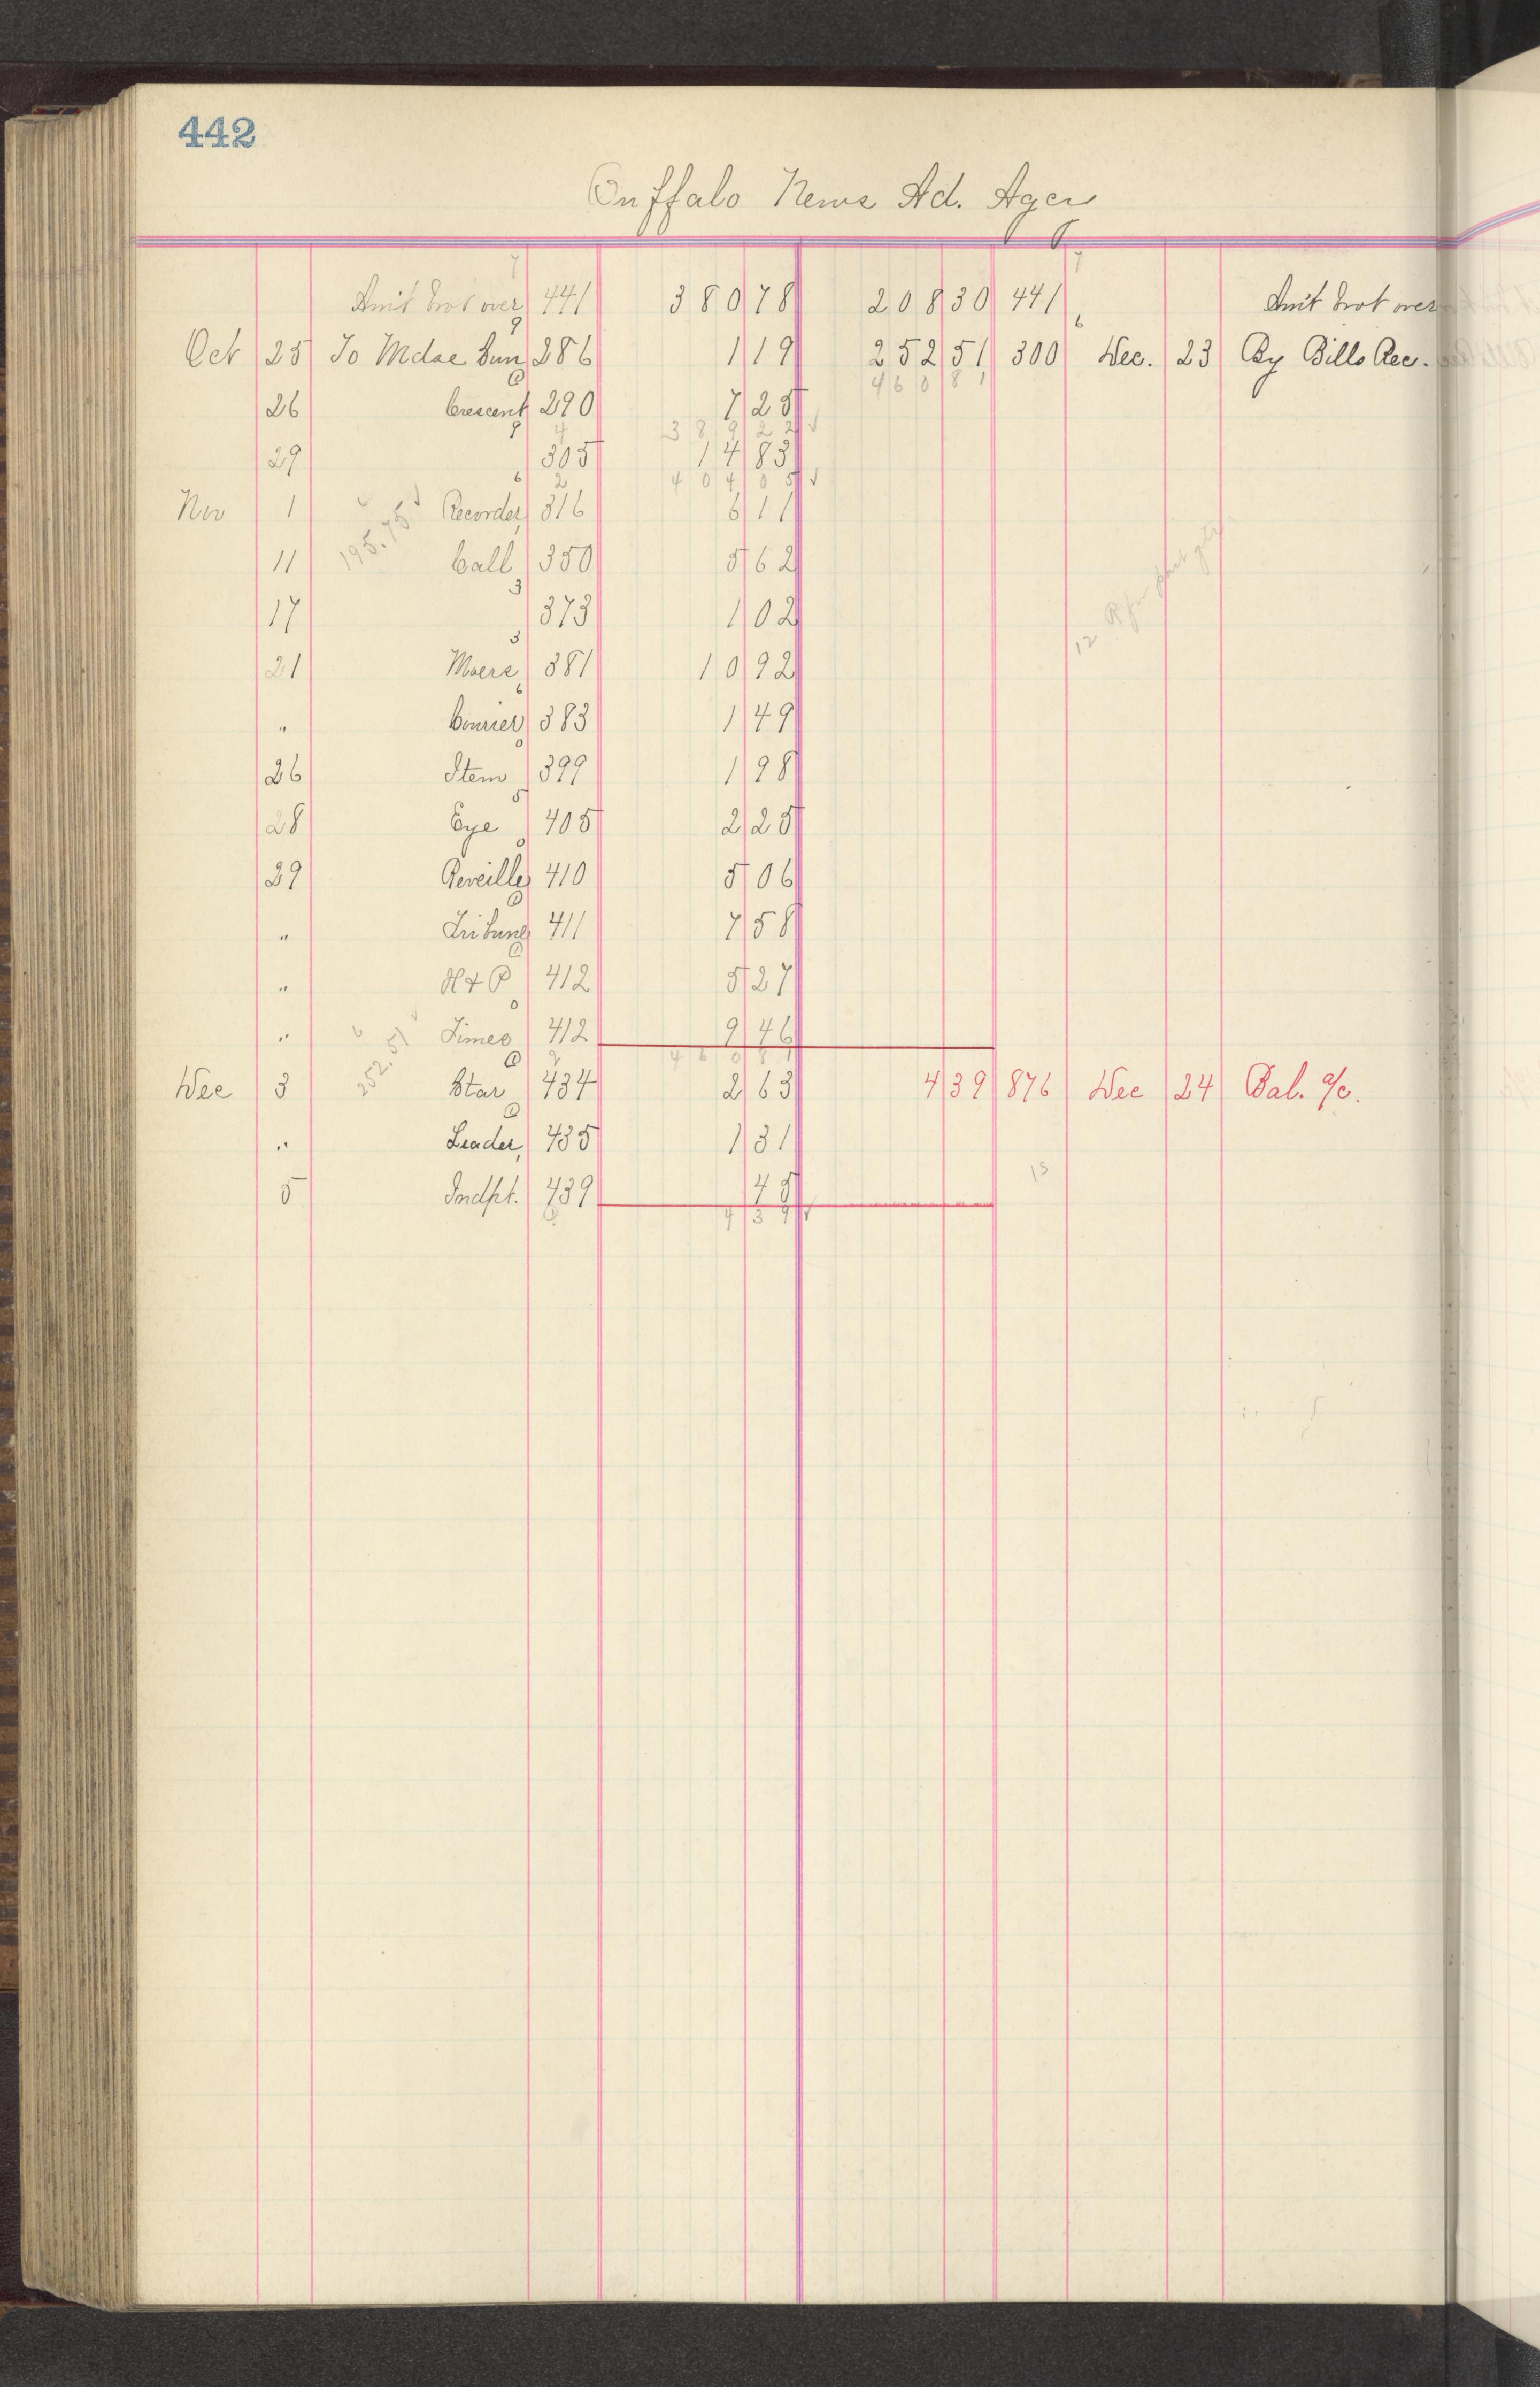 442
Buffalo News Ad. Agcy
Amt brot over 441 380 78 208 30 441 Amt brot over
Oct 25 To Mdse Sun 286 1 19 252 51 300 Dec. 23 By Bills Rec.
460 81
26 Crescent 290 7 25
389 22
29 305 14 83
404 05
Nov 1 Recorder 316 6 11
195.75
11 Call 350 5 62
17 373 1 02
21 381 10 92
" Courier 383 1 49
26 Item 399 1 98
28 Eye 405 2 25
29 Reveille 410 5 06
" Tribune 411 7 58
" H & P 412 5 27
" Times 412 9 46
252.51
460 81
Dec 3 Star 434 2 63 4 39 876 Dec 24 Bal. a/c.
" Leader 435 1 31
15
5 Indpt. 439 45
4 39